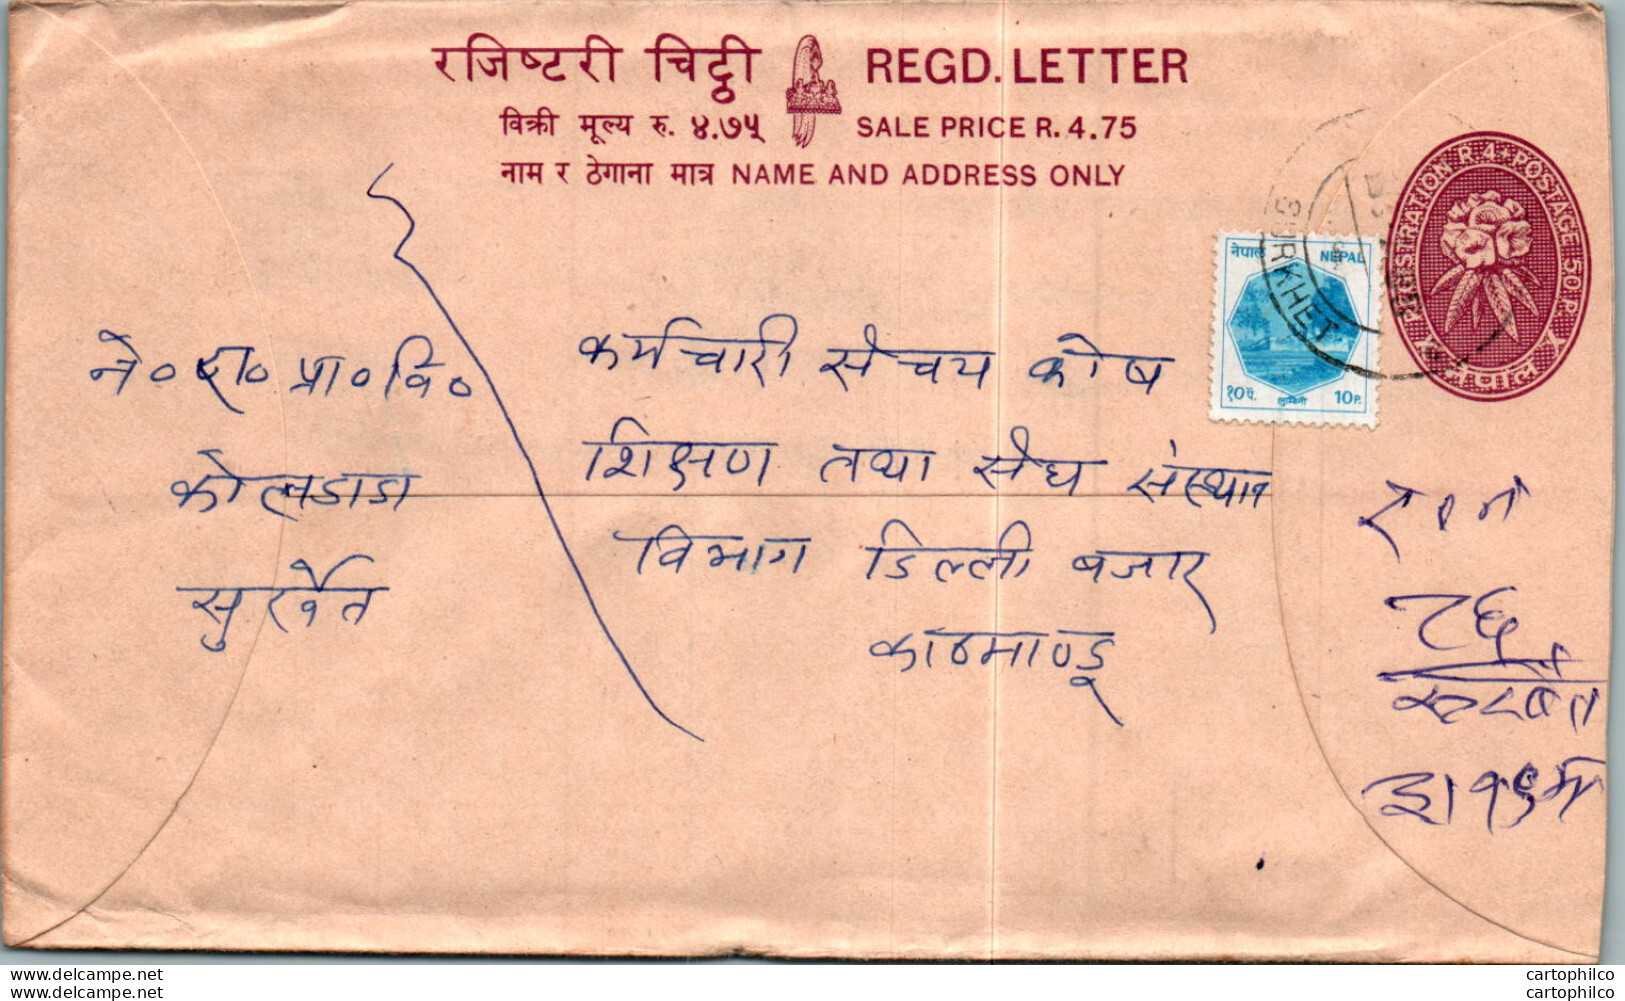 रजिष्टरी चिट्ठी REGD. LETTER
विक्री मूल्य रु. ४.७५ SALE PRICE R. 4.75
नाम र ठेगाना मात्र NAME AND ADDRESS ONLY
REGISTRATION R. 4 + POSTAGE 50 P.
नेपाल
नेपाल NEPAL
१० पै. लुम्बिनी 10 P.
SURKHET
कर्मचारी संचय कोष
शिक्षण तथा संघ संस्थान
विभाग डिल्ली बजार
काठमाण्डू
ने० रा० प्रा० वि०
कोलडाडा
सुर्खेत
८६
delcampe.net
delcampe.net
cartophilco
cartophilco